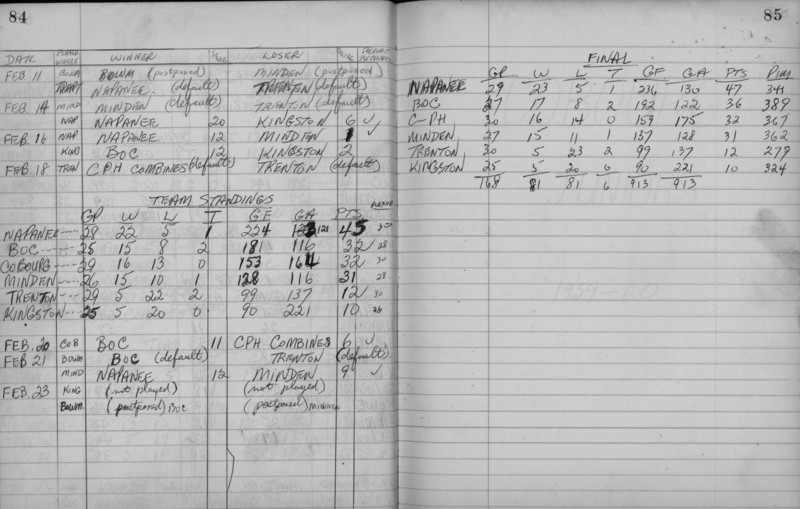 84
DATE PLAYED WHERE WINNER SCORE LOSER SCORE
FEB. 11 BOWM BOWM (postponed) MINDEN (postponed)
TRENT NAPANEE. (default) TRENTON (default)
FEB. 14 MIND MINDEN (default) TRENTON (default)
NAP NAPANEE 20 KINGSTON 6 ✓
FEB. 16 NAP NAPANEE 12 MINDEN 1 ✓
KING BOC 12 KINGSTON 2
FEB. 18 TREN CPH COMBINES (default) TRENTON (default)
TEAM STANDINGS
GP W L T GF GA PTS
NAPANEE 28 22 5 1 224 121 45 30
BOC 25 15 8 2 181 116 32 28
COBOURG 29 16 13 0 153 164 32 30
MINDEN 26 15 10 1 128 116 31 28
TRENTON 29 5 22 2 99 137 12 30
KINGSTON 25 5 20 0 90 221 10 26
FEB. 20 COB BOC 11 CPH COMBINES 6 ✓
FEB. 21 BOWM BOC (default) TRENTON (default)
MIND NAPANEE 12 MINDEN 9 ✓
FEB. 23 KING (not played) (not played)
BOWM. (postponed) BOC (postponed) MINDEN
85
FINAL
GP W L T GF GA PTS Pim
NAPANEE 29 23 5 1 236 130 47 341
BOC 27 17 8 2 192 122 36 389
C-PH 30 16 14 0 159 175 32 367
MINDEN 27 15 11 1 137 128 31 362
TRENTON 30 5 23 2 99 137 12 279
KINGSTON 25 5 20 0 90 221 10 324
168 81 81 6 913 913